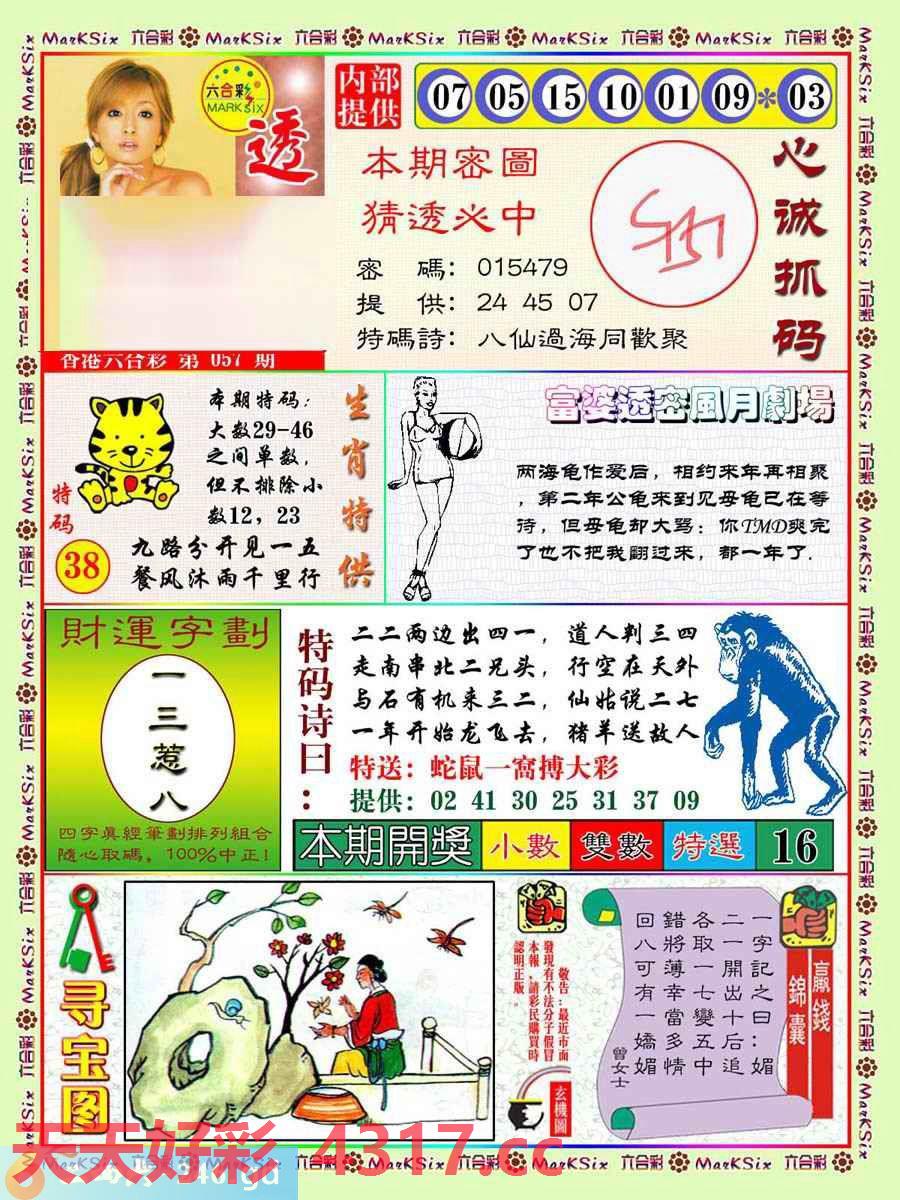 MarKSix 六合彩 MarKSix 六合彩 MarKSix 六合彩 MarKSix 六合彩 MarKSix 六合彩
六合彩
MARK SIX
透
内部
提供
07 05 15 10 01 09 * 03
本期密圖
猜透必中
密 碼: 015479
提 供: 24 45 07
特碼詩: 八仙過海同歡聚
心诚抓码
香港六合彩 第 057 期
特码
38
本期特码:
大数29-46
之间单数,
但不排除小
数12, 23
九路分开见一五
餐风沐雨千里行
生肖特供
富婆透密風月劇場
两海龟作爱后, 相约来年再相聚
, 第二年公龟来到见母龟已在等
待, 但母龟却大骂: 你TMD爽完
了也不把我翻过来, 都一年了.
財運字劃
一三惹八
四字真經筆劃排列組合
隨心取碼, 100%中正!
特码诗曰:
二二两边出四一, 道人判三四
走南串北二兄头, 行空在天外
与石有机来三二, 仙姑说二七
一年开始龙飞去, 猪羊送故人
特送: 蛇鼠一窩搏大彩
提供: 02 41 30 25 31 37 09
本期開獎 小數 雙數 特選 16
寻宝图
敬告:最近市面
發現有不法分子假冒
本報,請彩民購買時
認明正版。
玄機圖
贏錢
錦囊
一字記之曰:媚
二一開出十后追
各取一七變五中
錯將薄幸當多情
回八可有一嬌媚
曾女士
天天好彩 4317.cc
MarKSix 六合彩 MarKSix 六合彩 MarKSix 六合彩